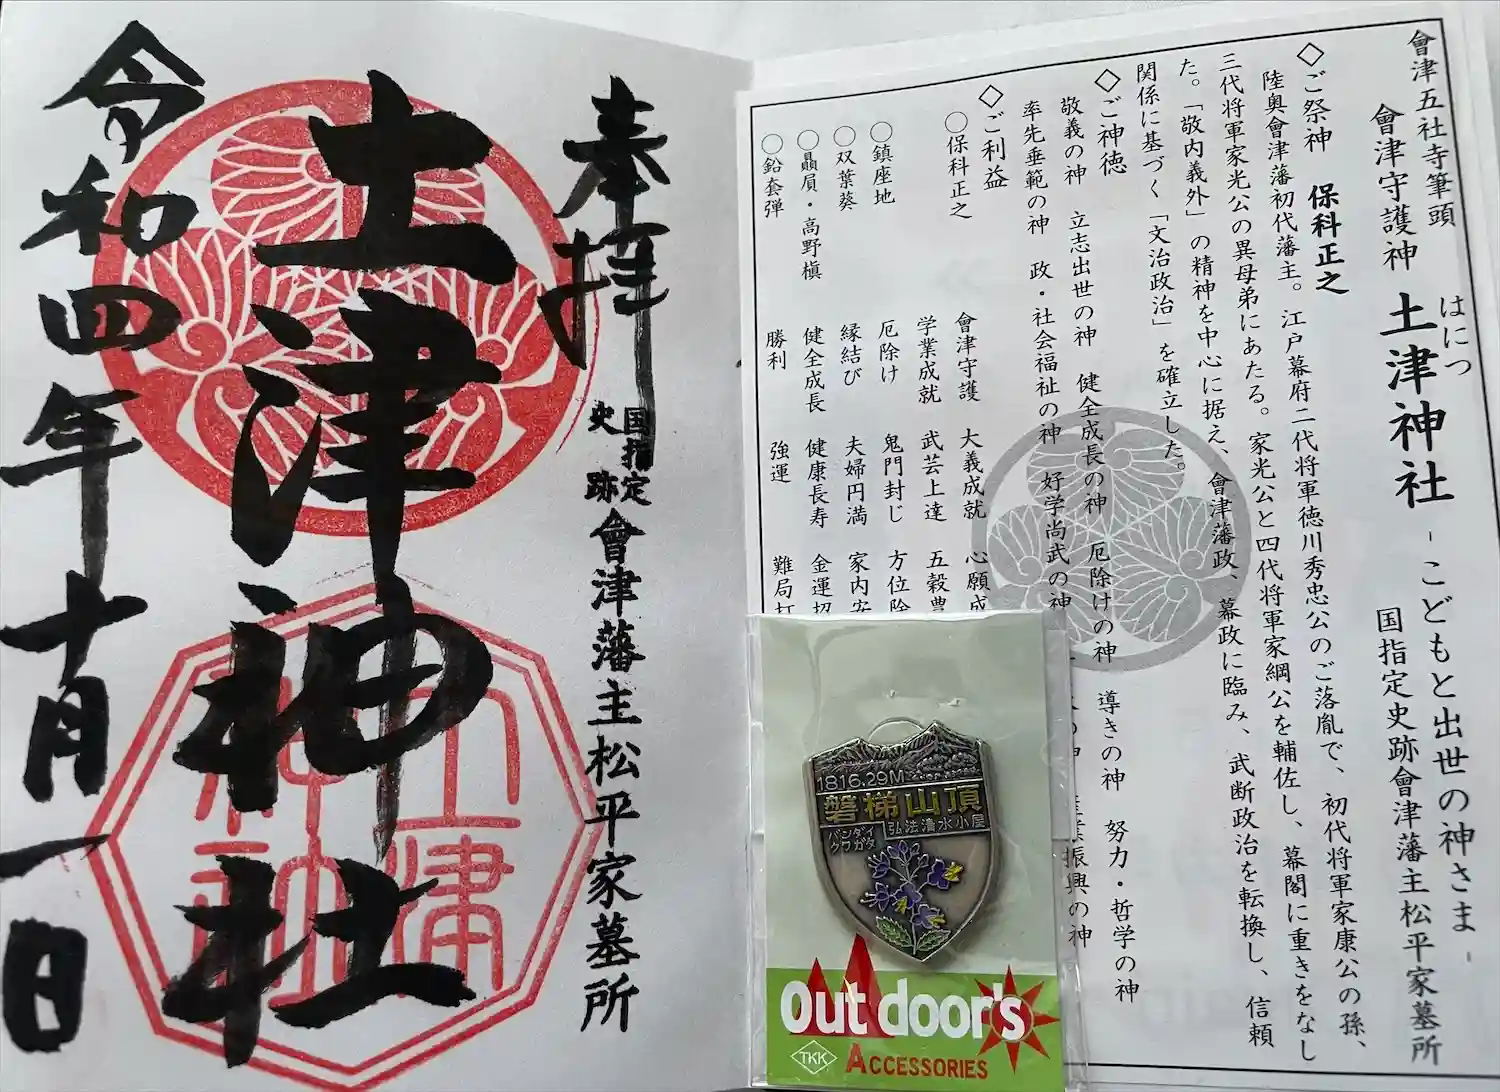 會津五社寺筆頭
會津守護神 土津神社 -こどもと出世の神さま-
はにつ
国指定史跡會津藩主松平家墓所
◇ご祭神 保科正之
陸奥會津藩初代藩主。江戸幕府二代将軍徳川秀忠公のご落胤で、初代将軍家康公の孫、
三代将軍家光公の異母弟にあたる。家光公と四代将軍家綱公を輔佐し、幕閣に重きをなし
た。「敬内義外」の精神を中心に据え、會津藩政、幕政に臨み、武断政治を転換し、信頼
関係に基づく「文治政治」を確立した。
◇ご神徳
敬義の神 立志出世の神 健全成長の神 厄除けの神 導きの神 努力・哲学の神
率先垂範の神 政・社会福祉の神 好学尚武の神 振興の神
◇ご利益
○保科正之 會津守護 大義成就 心願成
学業成就 武芸上達 五穀豊
○鎮座地 厄除け 鬼門封じ 方位除
○双葉葵 縁結び 夫婦円満 家内安
○贔屓・高野槇 健全成長 健康長寿 金運招
○鉛套弾 勝利 強運 難局打
1816.29M
磐梯山頂
バンダイ
クワガタ
弘法清水小屋
Outdoor's
TKK
ACCESSORIES
奉拝
国指定
史跡
會津藩主松平家墓所
土津神社
土津
神社
令和四年十月一日